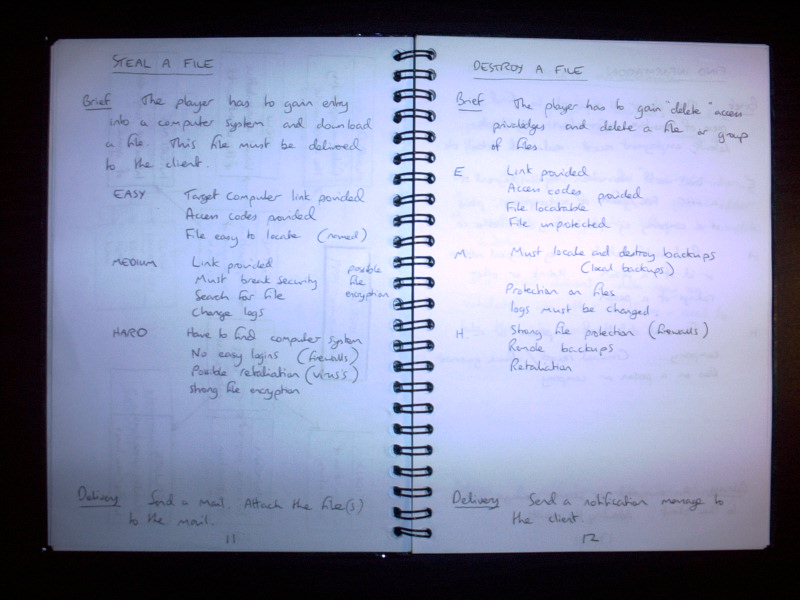 STEAL A FILE
Brief The player has to gain entry
into a computer system and download
a file. This file must be delivered
to the client.
EASY Target Computer link provided
Access codes provided
File easy to locate (named)
MEDIUM Link provided
Must break security
Search for file
Change logs
possible
file
encryption
HARD Have to find computer system
No easy logins (firewalls)
Possible retaliation (virus's)
strong file encryption
Delivery Send a mail. Attach the file(s)
to the mail.
11
DESTROY A FILE
Brief The player has to gain "delete" access
priviledges and delete a file or group
of files
E. Link provided
Access codes provided
File locatable
File unprotected
M. Must locate and destroy backups
(local backups)
Protection on files
logs must be changed.
H. Strong file protection (firewalls)
Remote backups
Retaliation
Delivery Send a notification message to
the client.
12